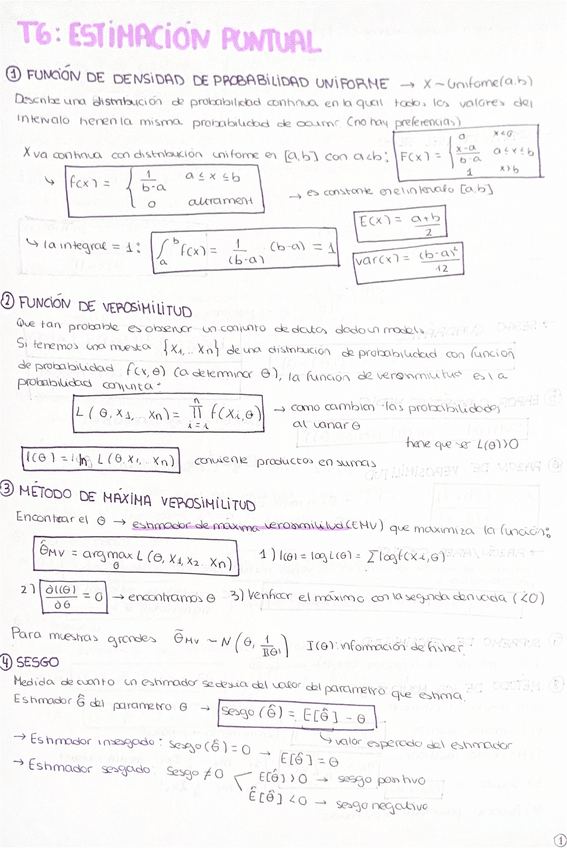 T6: ESTIMACIÓN PUNTUAL
① FUNCIÓN DE DENSIDAD DE PROBABILIDAD UNIFORME → X ~ Uniforme(a,b)
Describe una distribución de probabilidad continua en la qual todos los valores del
intervalo tienen la misma probabilidad de ocurrir (no hay preferencias)
X va continua con distribución uniforme en [a,b] con a<b: F(x) = { 0 x<a; x-a/b-a a≤x≤b; 1 x>b
↳ f(x) = { 1/b-a a≤x≤b; 0 altrament → es constante en el intervalo [a,b]
E(x) = a+b/2
↳ la integral = 1: ∫ₐᵇ f(x) = 1/(b-a) (b-a) = 1 var(x) = (b-a)²/12
② FUNCIÓN DE VEROSIMILITUD
Que tan probable es observar un conjunto de datos dado un modelo.
Si tenemos una muestra {x₁,... xn} de una distribución de probabilidad con función
de probabilidad f(x,θ) (a determinar θ), la función de verosimilitud es la
probabilidad conjunta:
L(θ, x₁,... xn) = ∏ i=1 n f(xi,θ) → como cambian las probabilidades
al variar θ
tiene que ser L(θ)>0
l(θ) = ln L(θ, x₁,... xn) convierte productos en sumas
③ MÉTODO DE MÁXIMA VEROSIMILITUD
Encontrar el θ → estimador de máxima verosimilitud (EMV) que maximiza la función:
θ̂MV = argmax θ L(θ, x₁, x₂... xn) 1) l(θ) = log L(θ) = Σ log f(xi,θ)
2) ∂l(θ)/∂θ = 0 → encontramos θ 3) Verificar el máximo con la segunda derivada (<0)
Para muestras grandes θ̂MV ~ N(θ, 1/I(θ)) I(θ): información de Fisher.
④ SESGO
Medida de cuanto un estimador se desvia del valor del parametro que estima.
Estimador θ̂ del parametro θ → Sesgo(θ̂) = E[θ̂] - θ
↳ valor esperado del estimador
→ Estimador insesgado: sesgo(θ̂) = 0 → E[θ̂] = θ
→ Estimador sesgado sesgo ≠ 0 E[θ̂] > 0 → sesgo positivo
E[θ̂] < 0 → sesgo negativo
①